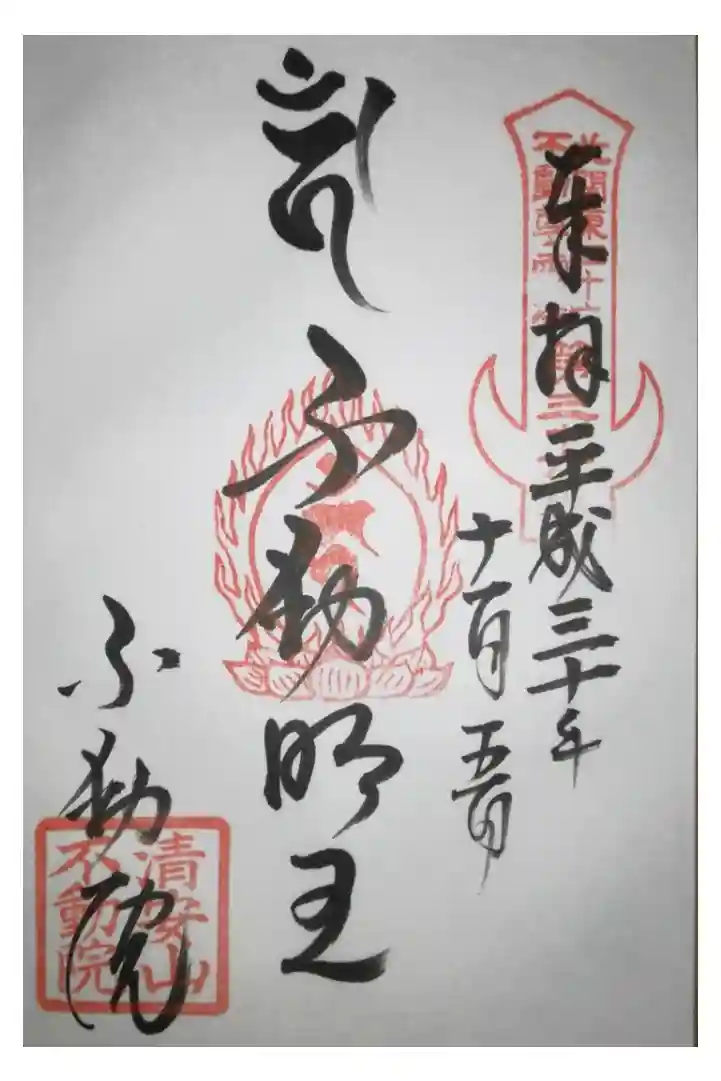 奉拝 平成三十年
十一月五日
不動明王
不動院
北関東三十六
不動尊霊
清安山
不動院